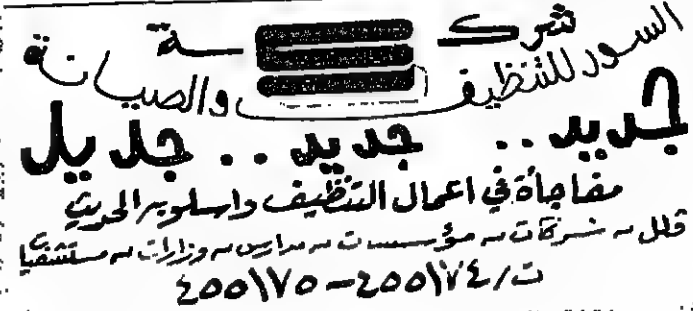 شركة
السور للتنظيف والصيانة
جديد.. جديد.. جديد
مفاجأة في اعمال التنظيف واسلوبه الحديث
فلل - شركات - مؤسسات - مدارس - وزارات - مستشفيات
ت/٤٥٥١٧٤-٤٥٥١٧٥